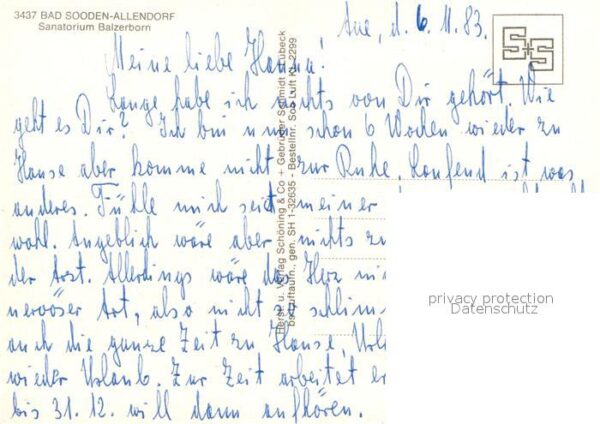 3437 BAD SOODEN-ALLENDORF
Sanatorium Balzerborn
S+S
Aue, d. 6.11.83.
Meine liebe Hanna!
Lange habe ich nichts von Dir gehört. Wie
geht es Dir? Ich bin nun schon 6 Wochen wieder zu
Hause aber komme nicht zur Ruhe. Laufend ist was
anderes. Fühle mich seit meiner
wohl. Angeblich wäre aber nichts zu
der Arzt. Allerdings wäre das Herz
nervöser Art, also nicht so schlim-
auch die ganze Zeit zu Hause,
wieder Urlaub. Zur Zeit arbeitet er
bis 31.12. will dann aufhören.
Herst. u. Verlag Schöning & Co + Gebrüder Schmidt Lübeck
Luftaufn. gen. SH 1-32635 - Bestellnr. Soo Luft K 2299
privacy protection
Datenschutz